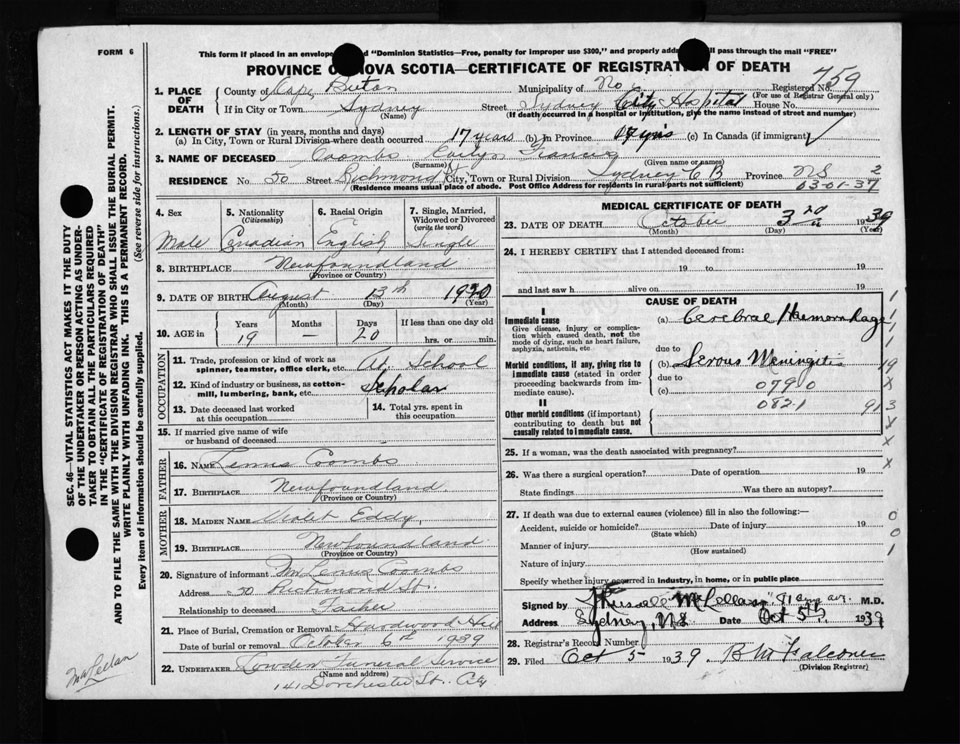 FORM 6
This form if placed in an envelope and "Dominion Statistics—Free, penalty for improper use $300," and properly addressed will pass through the mail "FREE"
PROVINCE OF NOVA SCOTIA—CERTIFICATE OF REGISTRATION OF DEATH
1. PLACE OF DEATH County of Cape Breton Municipality of No Registered No. 759
(For use of Registrar General only)
If in City or Town Sydney Street Sydney City Hospital House No.
(Name) (If death occurred in a hospital or institution, give the name instead of street and number)
2. LENGTH OF STAY (in years, months and days)
(a) In City, Town or Rural Division where death occurred 17 years (b) In Province 17 yrs (c) In Canada (if immigrant)
3. NAME OF DECEASED Coombs Francis
(Surname) (Given name or names)
RESIDENCE No 50 Street Richmond St City, Town or Rural Division Sydney C B Province NS 2
(Residence means usual place of abode. Post Office Address for residents in rural parts not sufficient) 03-01-37
4. Sex 5. Nationality (Citizenship) 6. Racial Origin 7. Single, Married, Widowed or Divorced (write the word)
Male Canadian English Single
8. BIRTHPLACE Newfoundland
(Province or Country)
9. DATE OF BIRTH August 13th 1920
(Month) (Day) (Year)
10. AGE in Years Months Days If less than one day old
19 20 hrs. or min.
OCCUPATION
11. Trade, profession or kind of work as spinner, teamster, office clerk, etc. At School
12. Kind of industry or business, as cotton-mill, lumbering, bank, etc. Scholar
13. Date deceased last worked at this occupation
14. Total yrs. spent in this occupation
15. If married give name of wife or husband of deceased
FATHER
16. NAME Coombs
17. BIRTHPLACE Newfoundland
(Province or Country)
MOTHER
18. MAIDEN NAME Violet Eddy
19. BIRTHPLACE Newfoundland
(Province or Country)
20. Signature of informant Coombs
Address 50 Richmond St.
Relationship to deceased Father
21. Place of Burial, Cremation or Removal Hardwood Hill
Date of burial or removal October 6th 1939
22. UNDERTAKER Funeral Service
(Name and address)
141 Dorchester St. City
MEDICAL CERTIFICATE OF DEATH
23. DATE OF DEATH October 3rd 1939
(Month) (Day) (Year)
24. I HEREBY CERTIFY that I attended deceased from:
19 to 19
and last saw h alive on 19
CAUSE OF DEATH
I
Immediate cause (a) Cerebral Haemorrhage
Give disease, injury or complication which caused death, not the mode of dying, such as heart failure, asphyxia, asthenia, etc.
due to
Morbid conditions, if any, giving rise to immediate cause (stated in order proceeding backwards from immediate cause). (b) Serous Meningitis
due to
(c) 0790
II
082.1 913
Other morbid conditions (if important) contributing to death but not causally related to immediate cause.
25. If a woman, was the death associated with pregnancy?
26. Was there a surgical operation? Date of operation 19
State findings Was there an autopsy?
27. If death was due to external causes (violence) fill in also the following:—
Accident, suicide or homicide? Date of injury 19
(State which)
Manner of injury
(How sustained)
Nature of injury
Specify whether injury occurred in industry, in home, or in public place
Signed by M.D.
Address Sydney, NS Date Oct 5th 1939
28. Registrar's Record Number
29. Filed Oct 5 1939. B M Falconer
(Division Registrar)
SEC. 46—VITAL STATISTICS ACT MAKES IT THE DUTY
OF THE UNDERTAKER OR PERSON ACTING AS UNDER-
TAKER TO OBTAIN ALL THE PARTICULARS REQUIRED
IN THE "CERTIFICATE OF REGISTRATION OF DEATH"
AND TO FILE THE SAME WITH THE DIVISION REGISTRAR WHO SHALL ISSUE THE BURIAL PERMIT.
WRITE PLAINLY WITH UNFADING INK. THIS IS A PERMANENT RECORD.
Every item of information should be carefully supplied. (See reverse side for instructions.)
McLellan